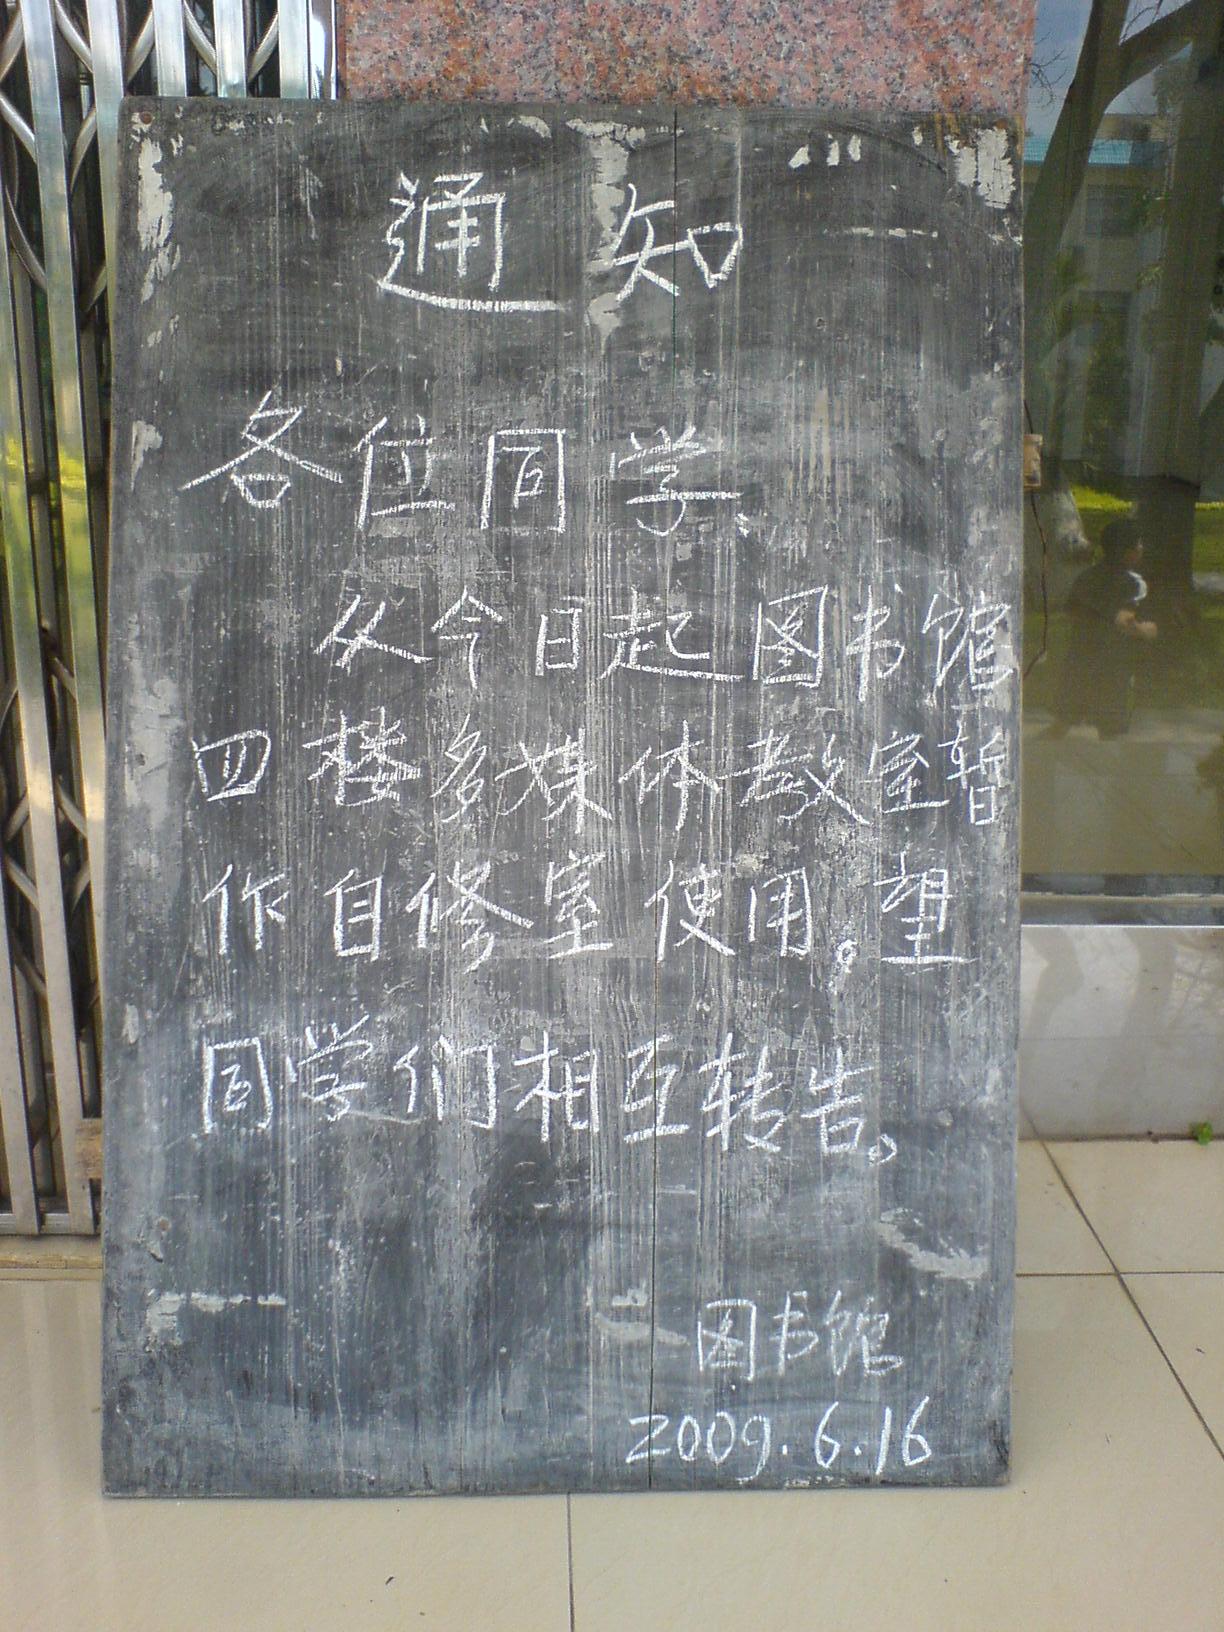 通知
各位同学、
从今日起图书馆
四楼多媒体教室暂
作自修室使用。望
同学们相互转告。
图书馆
2009.6.16